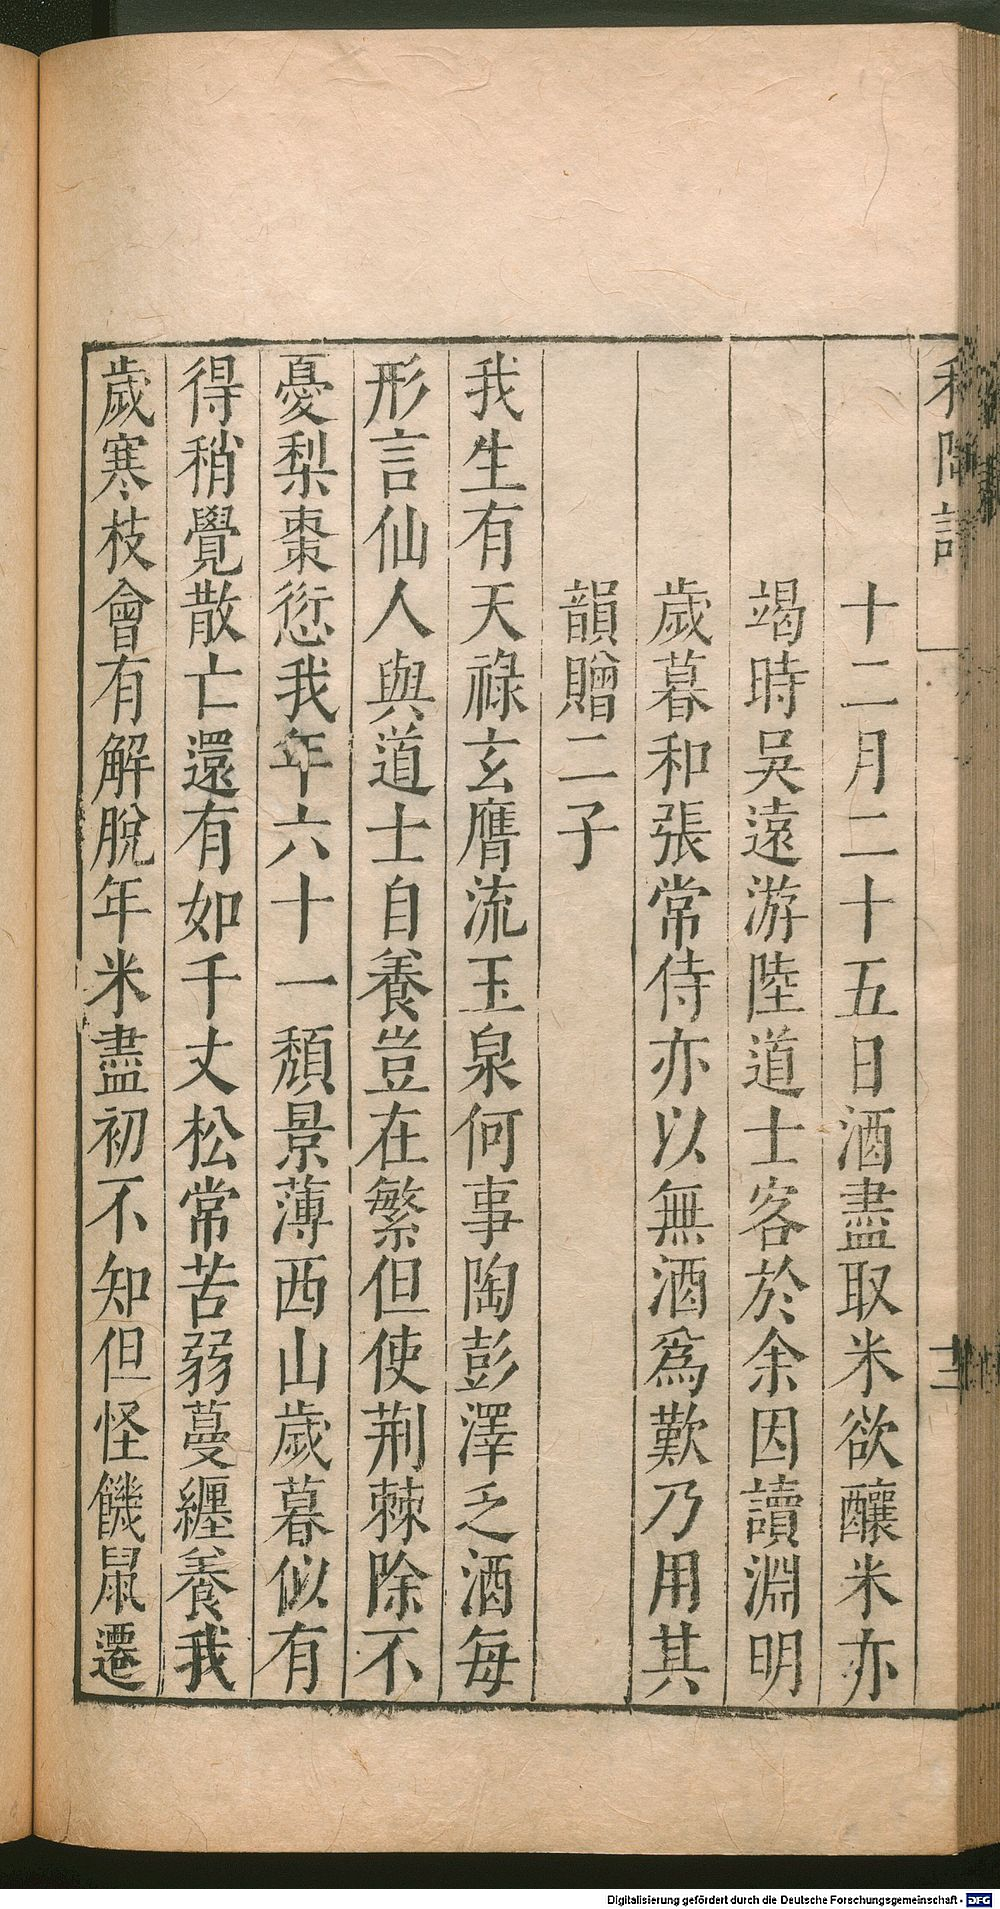 和陶詩 十二
十二月二十五日酒盡取米欲釀米亦
竭時吳遠游陸道士客於余因讀淵明
歲暮和張常侍亦以無酒爲歎乃用其
韻贈二子
我生有天祿玄膺流玉泉何事陶彭澤乏酒每
形言仙人與道士自養豈在繁但使荆棘除不
憂梨棗愆我年六十一頹景薄西山歲暮似有
得稍覺散亡還有如千丈松常苦弱蔓纏養我
歲寒枝會有解脫年米盡初不知但怪饑鼠遷
Digitalisierung gefördert durch die Deutsche Forschungsgemeinschaft - DFG